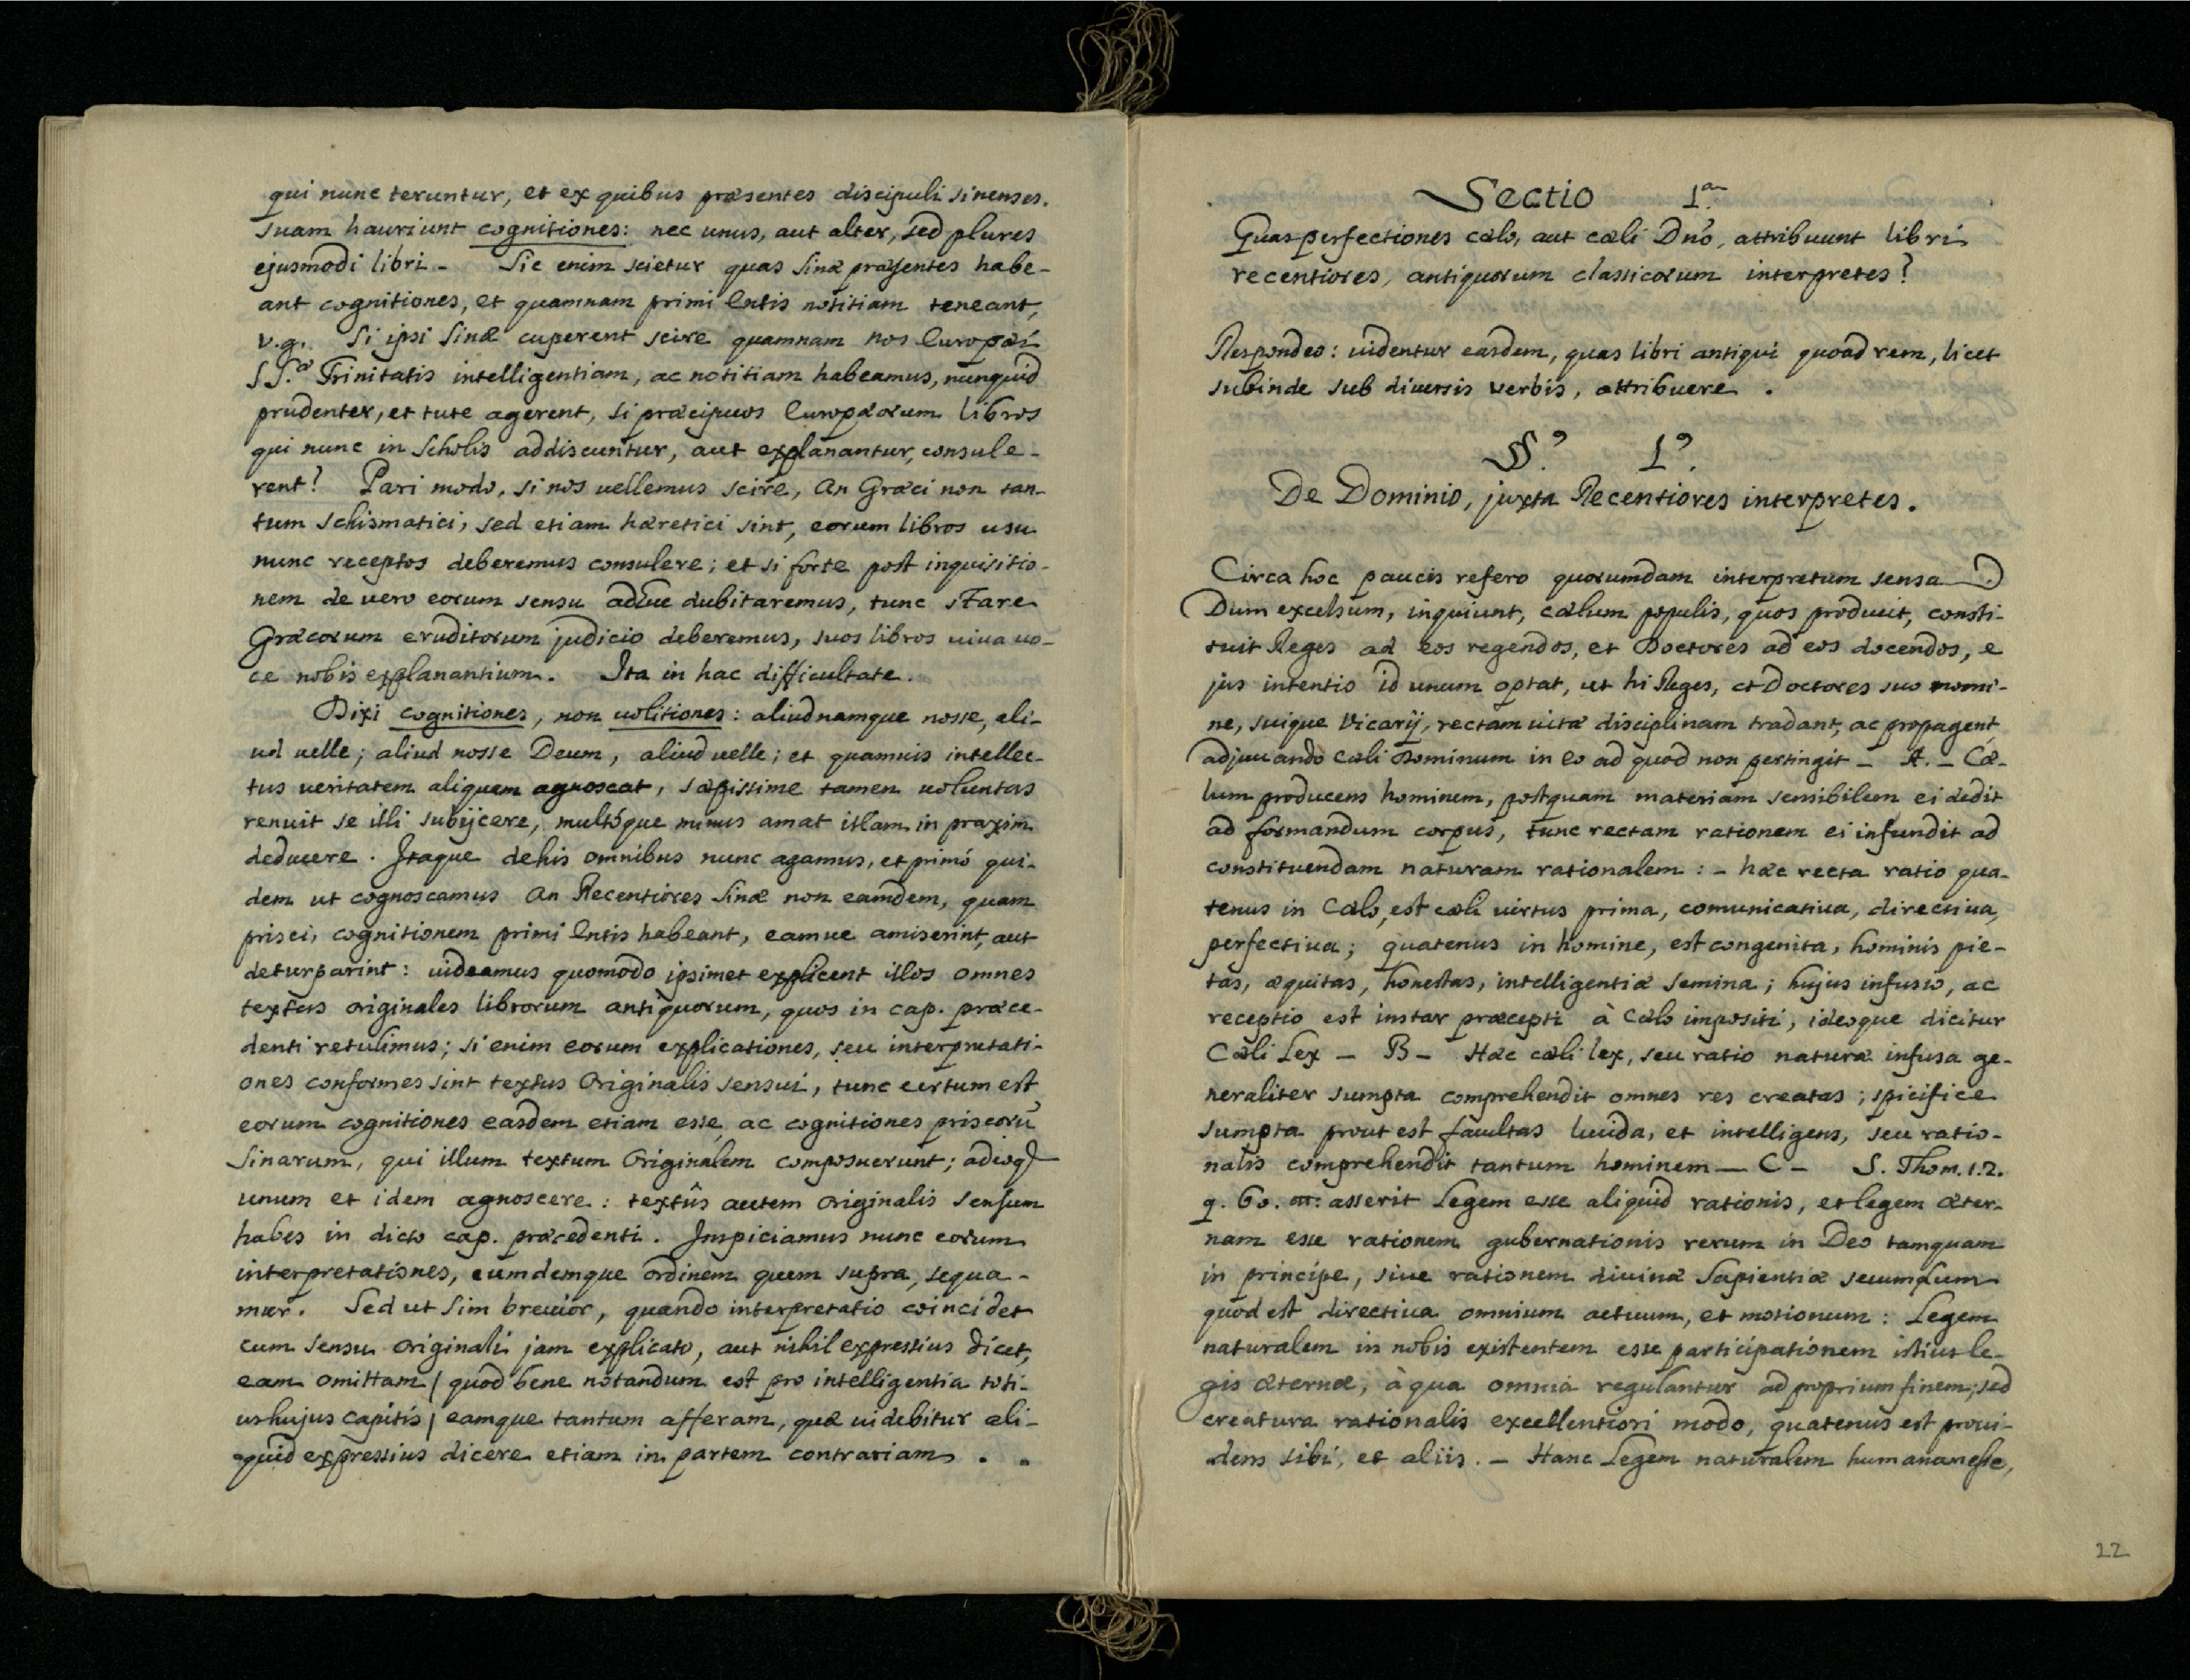 qui nunc teruntur, et ex quibus præsentes discipuli sinenses.
suam hauriunt cognitiones: nec unus, aut alter, sed plures
ejusmodi libri - Sic enim scietur quas Sinæ præsentes habe-
ant cognitiones, et quamnam primi Entis notitiam teneant,
v.g. Si ipsi Sinæ cuperent scire quamnam nos Europæi
SS.æ Trinitatis intelligentiam, ac notitiam habeamus, nunquid
prudenter, et tute agerent, si præcipuos Europæorum libros
qui nunc in Scholis addiscuntur, aut explanantur, consule-
rent? Pari modo, si nos uellemus scire, an Græci non tan-
tum schismatici, sed etiam hæretici sint, eorum libros usu
nunc receptos deberemus consulere; et si forte post inquisitio-
nem de uero eorum sensu adhuc dubitaremus, tunc stare
Græcorum eruditorum judicio deberemus, suos libros uiua uo-
ce nobis explanantium. Ita in hac difficultate.
Dixi cognitiones, non uolitiones: aliud namque nosse, ali-
ud uelle; aliud nosse Deum, aliud uelle; et quamuis intellec-
tus ueritatem aliquam agnoscat, sæpissime tamen uoluntas
renuit se illi subijcere, multóque minus amat illam in praxim
deducere. Itaque de his omnibus nunc agamus, et primó qui-
dem ut cognoscamus an Recentiores Sinæ non eamdem, quam
prisci, cognitionem primi Entis habeant, eamue amiserint, aut
deturparint: uideamus quomodo ipsimet explicent illos omnes
textus originales librorum antiquorum, quos in cap. præce-
denti retulimus; si enim eorum explicationes, seu interpretati-
ones conformes sint textus Originalis sensui, tunc certum est
eorum cognitiones easdem etiam esse, ac cognitiones priscorũ
Sinarum, qui illum textum Originalem composuerunt; adeoq
unum et idem agnoscere: textûs autem originalis sensum
habes in dicto cap. præcedenti. Inspiciamus nunc eorum
interpretationes, eumdemque ordinem quem supra, sequa-
mur. Sed ut sim breuior, quando interpretatio coincidet
cum sensu originali jam explicato, aut nihil expressius dicet,
eam omittam / quod bene notandum est pro intelligentia toti-
us hujus capitis / eamque tantum afferam, quæ uidebitur ali-
quid expressius dicere etiam in partem contrariam . .
Sectio 1.ª
Quas perfectiones cælo, aut cæli Dnõ, attribuunt libri
recentiores, antiquorum classicorum interpretes?
Respondeo: uidentur easdem, quas libri antiqui quoad rem, licet
subinde sub diuersis verbis, attribuere .
§.º 1.º
De Dominio, juxta Recentiores interpretes.
Circa hoc paucis refero quorumdam interpretum sensa
Dum excelsum, inquiunt, cælum populis, quos producit, consti-
tuit Reges ad eos regendos, et Doctores ad eos docendos, e
jus intentio id unum optat, ut hi Reges, et Doctores suo nomi-
ne, suique Vicarij, rectam uitæ disciplinam tradant, ac propagent
adjuuando cæli Dominum in eo ad quod non pertingit - A. - Cæ-
lum producens hominem, postquam materiam sensibilem ei dedit
ad formandum corpus, tunc rectam rationem ei infundit ad
constituendam naturam rationalem : - hæc recta ratio qua-
tenus in Cælo, est cæli uirtus prima, comunicatiua, directiua,
perfectiua; quatenus in homine, est congenita, hominis pie-
tas, æquitas, honestas, intelligentiæ semina; hujus infusio, ac
receptio est instar præcepti à Cælo impositi, ideoque dicitur
Cæli Lex - B - Hæc cæli lex, seu ratio naturæ infusa ge-
neraliter sumpta comprehendit omnes res creatas; spicifice
sumpta prout est facultas lucida, et intelligens, seu ratio-
nalis comprehendit tantum hominem - C - S. Thom. 1.2.
q. 60. asserit Legem esse aliquid rationis, et legem æter-
nam esse rationem gubernationis rerum in Deo tamquam
in principe, siue rationem diuinæ Sapientiæ secumdum
quod est directiua omnium actuum, et motionum: Legem
naturalem in nobis existentem esse participationem istius le-
gis æternæ, à qua omnia regulantur ad proprium finem; sed
creatura rationalis excellentiori modo, quatenus est proui-
dens sibi, et aliis. - Hanc Legem naturalem humanam esse,
22